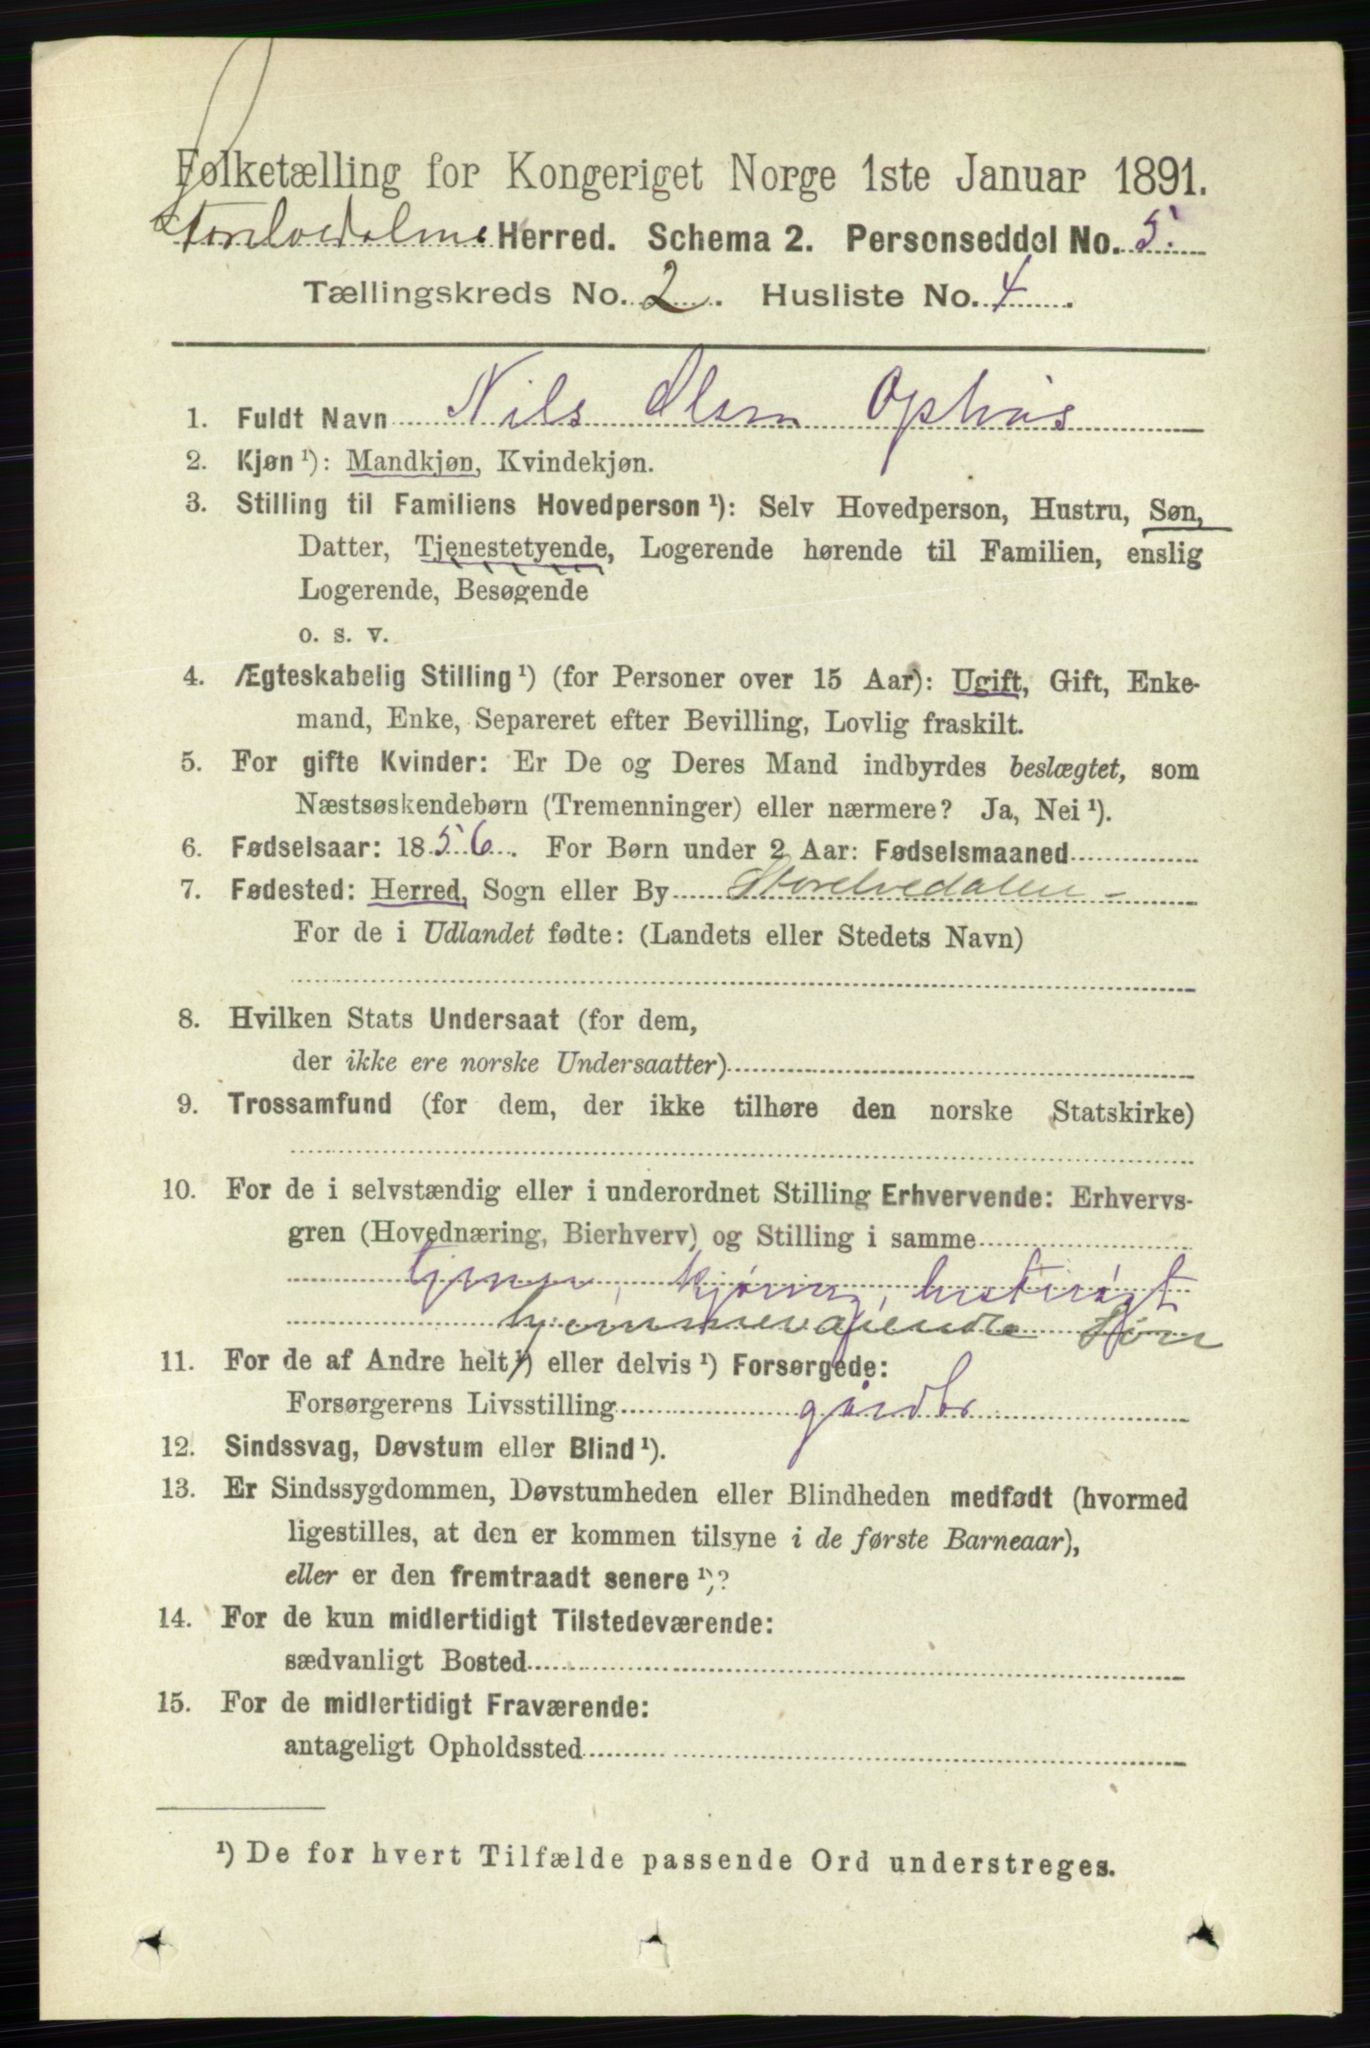 Folketælling for Kongeriget Norge 1ste Januar 1891.
Storelvedalens Herred. Schema 2. Personseddel No. 5.
Tællingskreds No. 2. Husliste No. 4.
1. Fuldt Navn Nils Olsen Ophus
2. Kjøn ¹): Mandkjøn, Kvindekjøn.
3. Stilling til Familiens Hovedperson ¹): Selv Hovedperson, Hustru, Søn,
Datter, Tjenestetyende, Logerende hørende til Familien, enslig
Logerende, Besøgende
o. s. v.
4. Ægteskabelig Stilling ¹) (for Personer over 15 Aar): Ugift, Gift, Enke-
mand, Enke, Separeret efter Bevilling, Lovlig fraskilt.
5. For gifte Kvinder: Er De og Deres Mand indbyrdes beslægtet, som
Næstsøskendebørn (Tremenninger) eller nærmere? Ja, Nei ¹).
6. Fødselsaar: 1856. For Børn under 2 Aar: Fødselsmaaned
7. Fødested: Herred, Sogn eller By Storelvedalen -
For de i Udlandet fødte: (Landets eller Stedets Navn)
8. Hvilken Stats Undersaat (for dem,
der ikke ere norske Undersaatter)
9. Trossamfund (for dem, der ikke tilhøre den norske Statskirke)
10. For de i selvstændig eller i underordnet Stilling Erhvervende: Erhvervs-
gren (Hovednæring, Bierhverv) og Stilling i samme
tjener, kjøring, hustrøgt
hjemmeværende Søn
11. For de af Andre helt ¹) eller delvis ¹) Forsørgede:
Forsørgerens Livsstilling gårdbr
12. Sindssvag, Døvstum eller Blind ¹).
13. Er Sindssygdommen, Døvstumheden eller Blindheden medfødt (hvormed
ligestilles, at den er kommen tilsyne i de første Barneaar),
eller er den fremtraadt senere ¹)?
14. For de kun midlertidigt Tilstedeværende:
sædvanligt Bosted
15. For de midlertidigt Fraværende:
antageligt Opholdssted
¹) De for hvert Tilfælde passende Ord understreges.